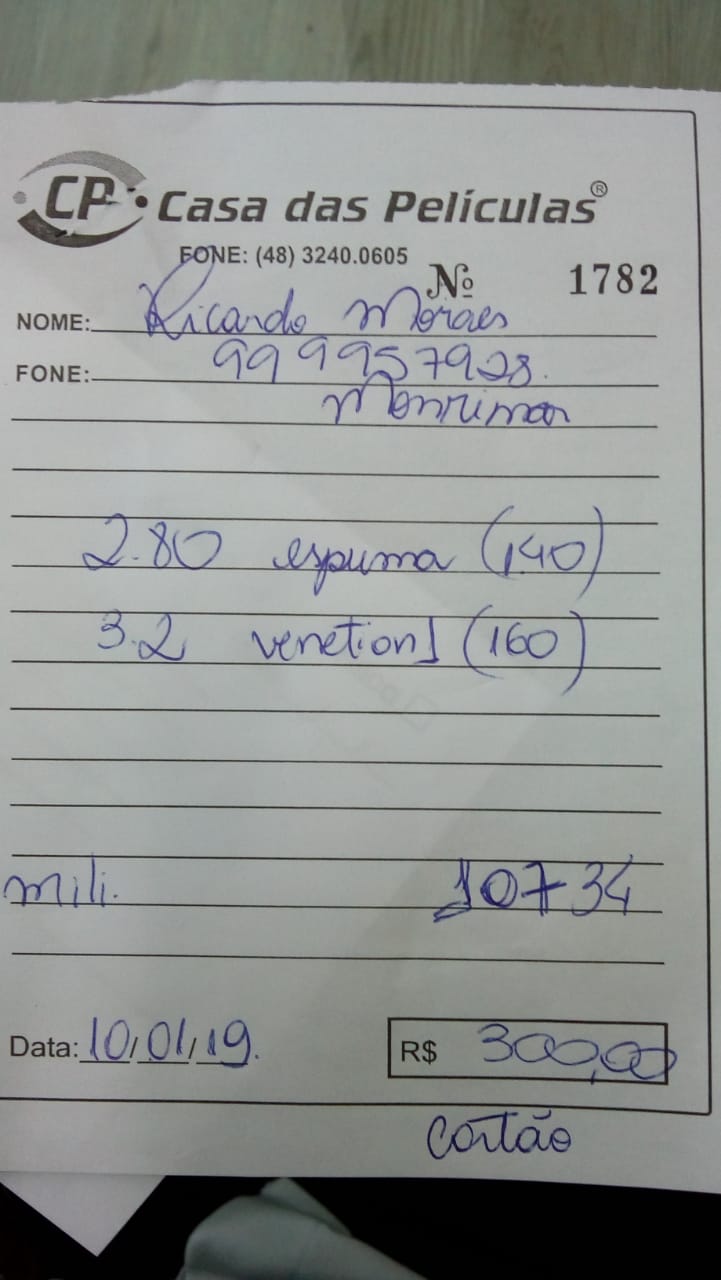 CP. Casa das Películas®
FONE: (48) 3240.0605
Nº 1782
NOME: Ricardo Moraes
FONE: 99 9957928.
2.80 espuma (140)
3.2 (160)
mili. 10734
Data: 10/01/19. R$ 300,00
Cartão